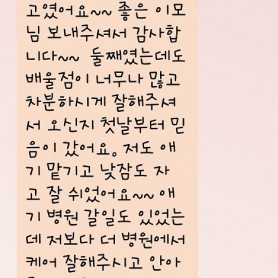 고였어요~~ 좋은 이모
님 보내주셔서 감사합
니다~~ 둘째였는데도
배울점이 너무나 많고
차분하시게 잘해주셔
서 오신지 첫날부터 믿
음이 갔어요. 저도 애
기 맡기고 낮잠도 자
고 잘 쉬었어요~~ 애
기 병원 갈일도 있었는
데 저보다 더 병원에서
케어 잘해주시고 안아